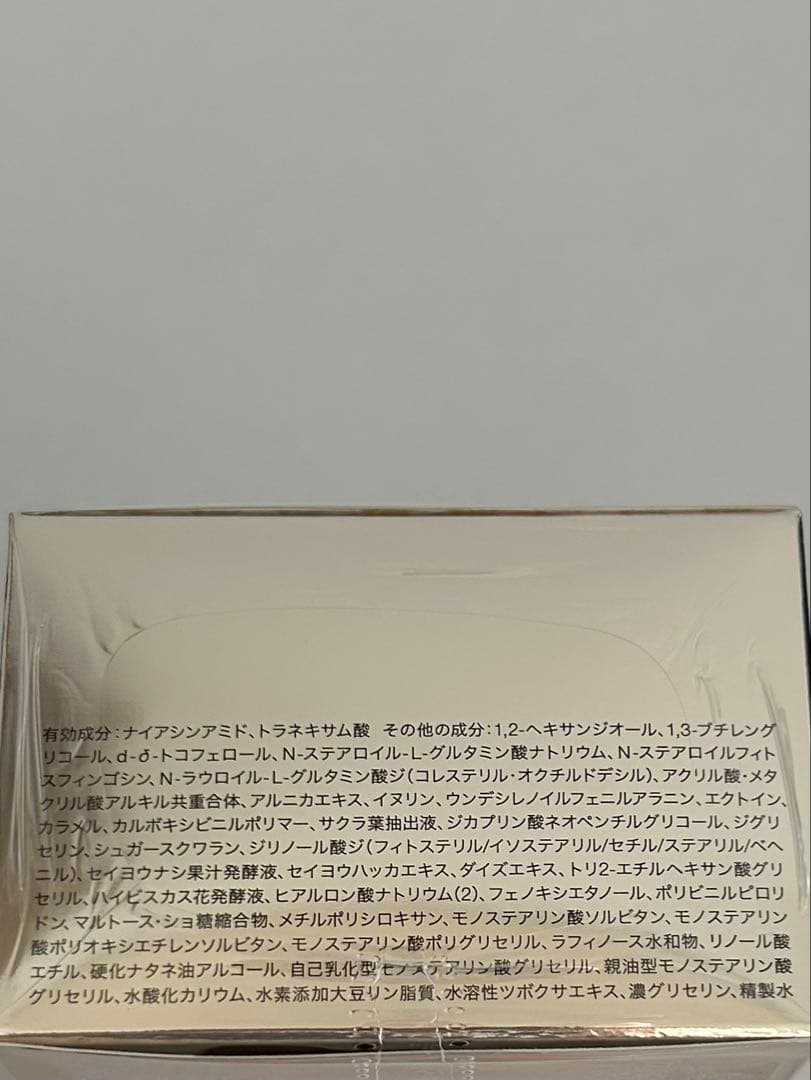 有効成分：ナイアシンアミド、トラネキサム酸 その他の成分：1,2-ヘキサンジオール、1,3-ブチレング
リコール、d-δ-トコフェロール、N-ステアロイル-L-グルタミン酸ナトリウム、N-ステアロイルフィト
スフィンゴシン、N-ラウロイル-L-グルタミン酸ジ（コレステリル・オクチルドデシル）、アクリル酸・メタ
クリル酸アルキル共重合体、アルニカエキス、イヌリン、ウンデシレノイルフェニルアラニン、エクトイン、
カラメル、カルボキシビニルポリマー、サクラ葉抽出液、ジカプリン酸ネオペンチルグリコール、ジグリ
セリン、シュガースクワラン、ジリノール酸ジ（フィトステリル/イソステアリル/セチル/ステアリル/ベヘ
ニル）、セイヨウナシ果汁発酵液、セイヨウハッカエキス、ダイズエキス、トリ2-エチルヘキサン酸グリ
セリル、ハイビスカス花発酵液、ヒアルロン酸ナトリウム（2）、フェノキシエタノール、ポリビニルピロリ
ドン、マルトース・ショ糖縮合物、メチルポリシロキサン、モノステアリン酸ソルビタン、モノステアリン
酸ポリオキシエチレンソルビタン、モノステアリン酸ポリグリセリル、ラフィノース水和物、リノール酸
エチル、硬化ナタネ油アルコール、自己乳化型モノステアリン酸グリセリル、親油型モノステアリン酸
グリセリル、水酸化カリウム、水素添加大豆リン脂質、水溶性ツボクサエキス、濃グリセリン、精製水